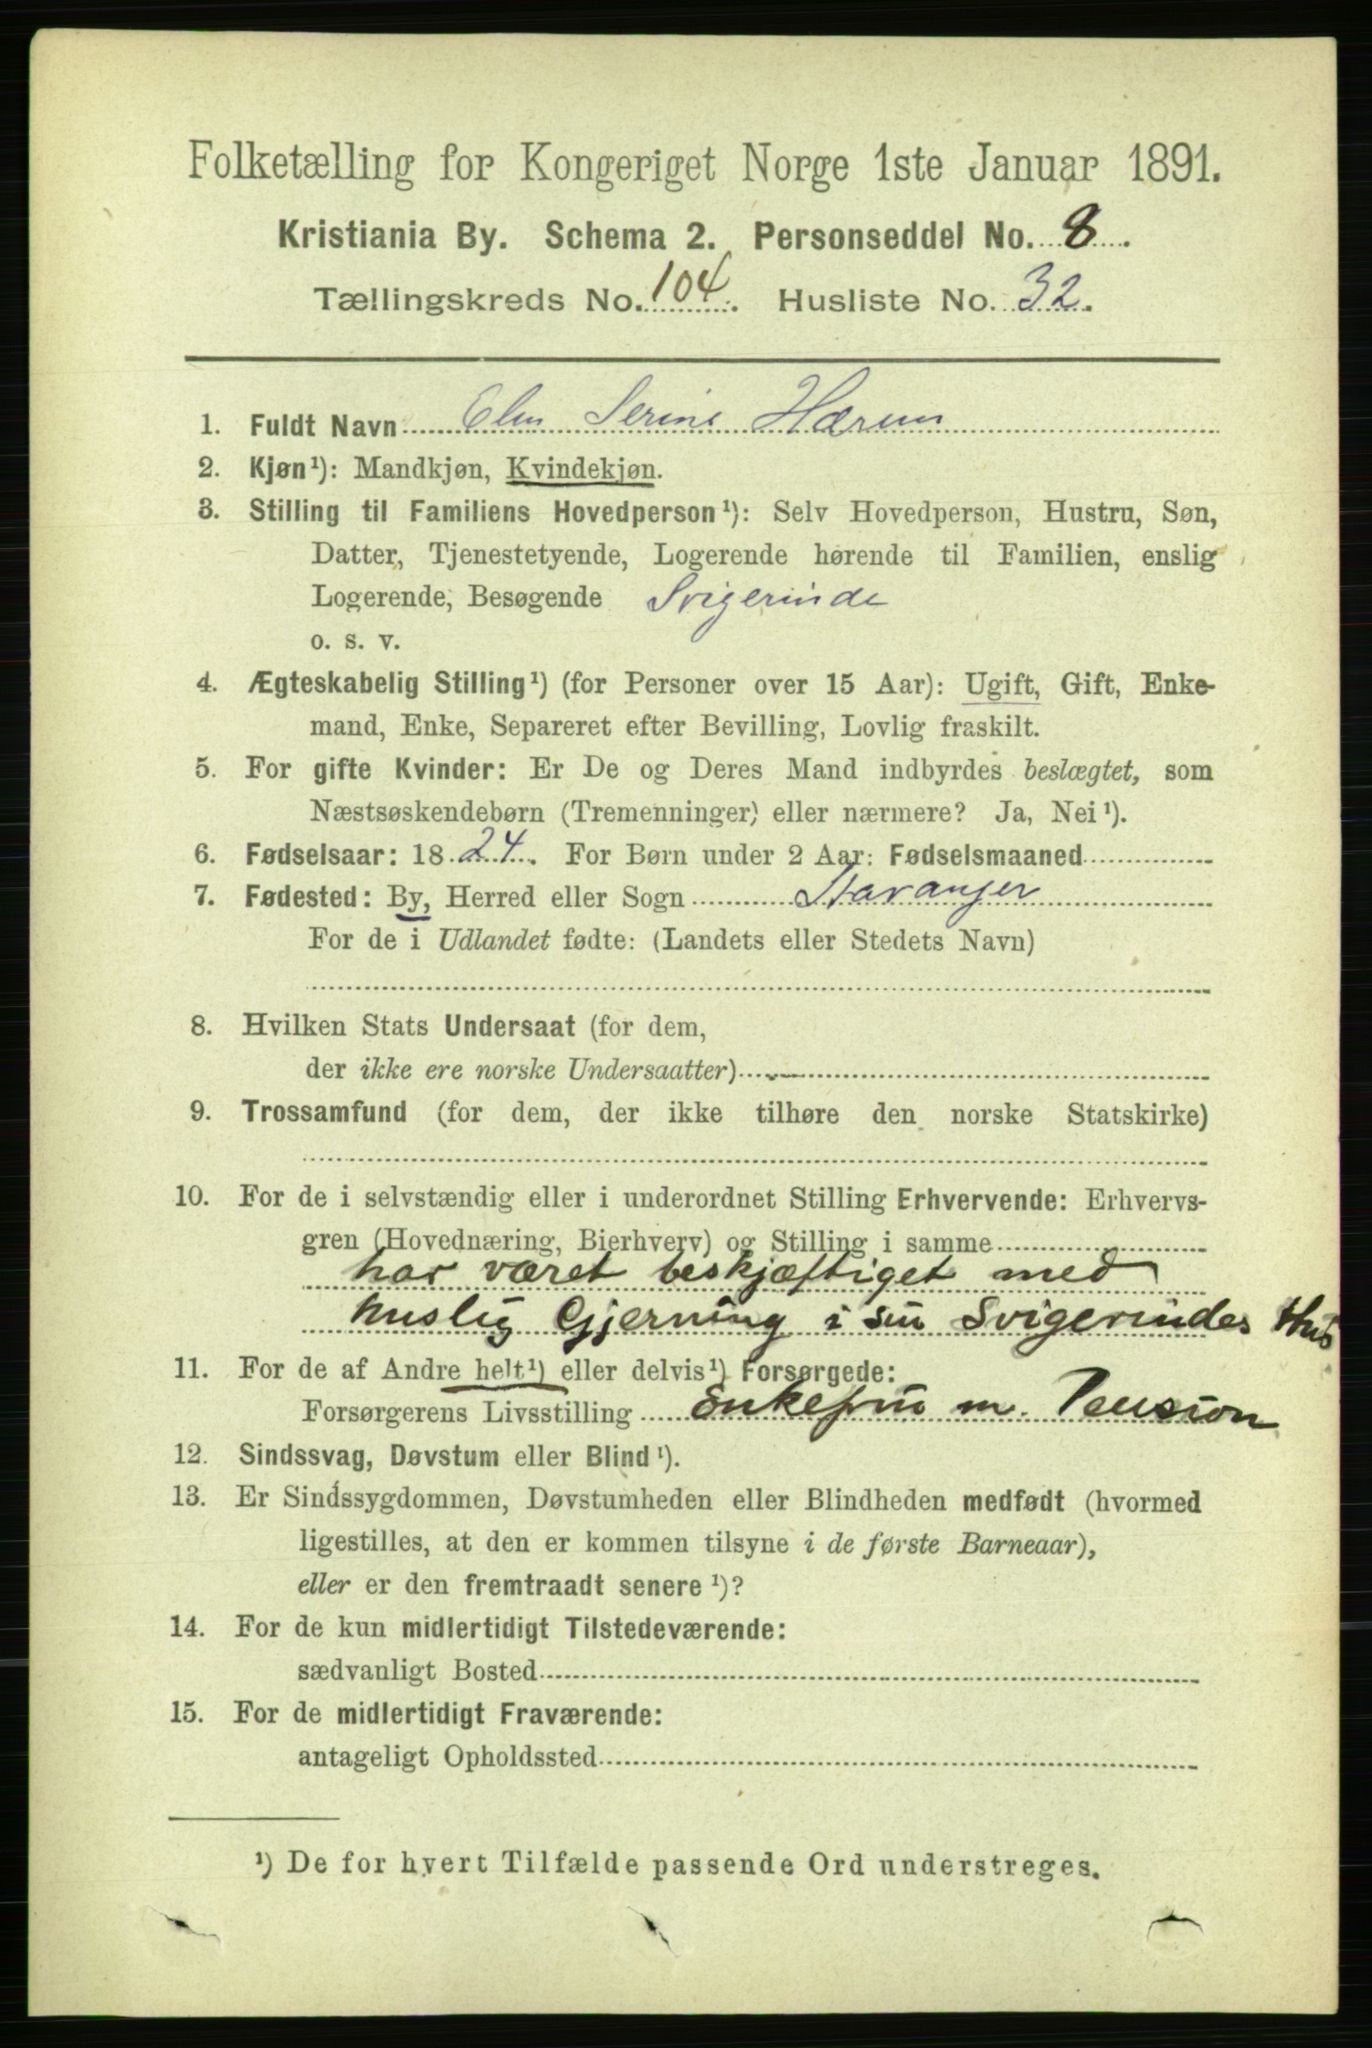 Folketælling for Kongeriget Norge 1ste Januar 1891.
Kristiania By. Schema 2. Personseddel No. 8.
Tællingskreds No. 104. Husliste No. 32.
1. Fuldt Navn Elen Serine Hærem
2. Kjøn¹): Mandkjøn, Kvindekjøn.
3. Stilling til Familiens Hovedperson¹): Selv Hovedperson, Hustru, Søn,
Datter, Tjenestetyende, Logerende hørende til Familien, enslig
Logerende, Besøgende Svigerinde
o. s. v.
4. Ægteskabelig Stilling¹) (for Personer over 15 Aar): Ugift, Gift, Enke-
mand, Enke, Separeret efter Bevilling, Lovlig fraskilt.
5. For gifte Kvinder: Er De og Deres Mand indbyrdes beslægtet, som
Næstsøskendebørn (Tremenninger) eller nærmere? Ja, Nei¹).
6. Fødselsaar: 1824. For Børn under 2 Aar: Fødselsmaaned
7. Fødested: By, Herred eller Sogn Stavanger
For de i Udlandet fødte: (Landets eller Stedets Navn)
8. Hvilken Stats Undersaat (for dem,
der ikke ere norske Undersaatter)
9. Trossamfund (for dem, der ikke tilhøre den norske Statskirke)
10. For de i selvstændig eller i underordnet Stilling Erhvervende: Erhvervs-
gren (Hovednæring, Bierhverv) og Stilling i samme
har været beskjæftiget med
huslig Gjerning i sin Svigerindes Hus
11. For de af Andre helt¹) eller delvis¹) Forsørgede:
Forsørgerens Livsstilling Enkefrue m. Pension
12. Sindssvag, Døvstum eller Blind¹).
13. Er Sindssygdommen, Døvstumheden eller Blindheden medfødt (hvormed
ligestilles, at den er kommen tilsyne i de første Barneaar),
eller er den fremtraadt senere¹)?
14. For de kun midlertidigt Tilstedeværende:
sædvanligt Bosted
15. For de midlertidigt Fraværende:
antageligt Opholdssted
¹) De for hvert Tilfælde passende Ord understreges.